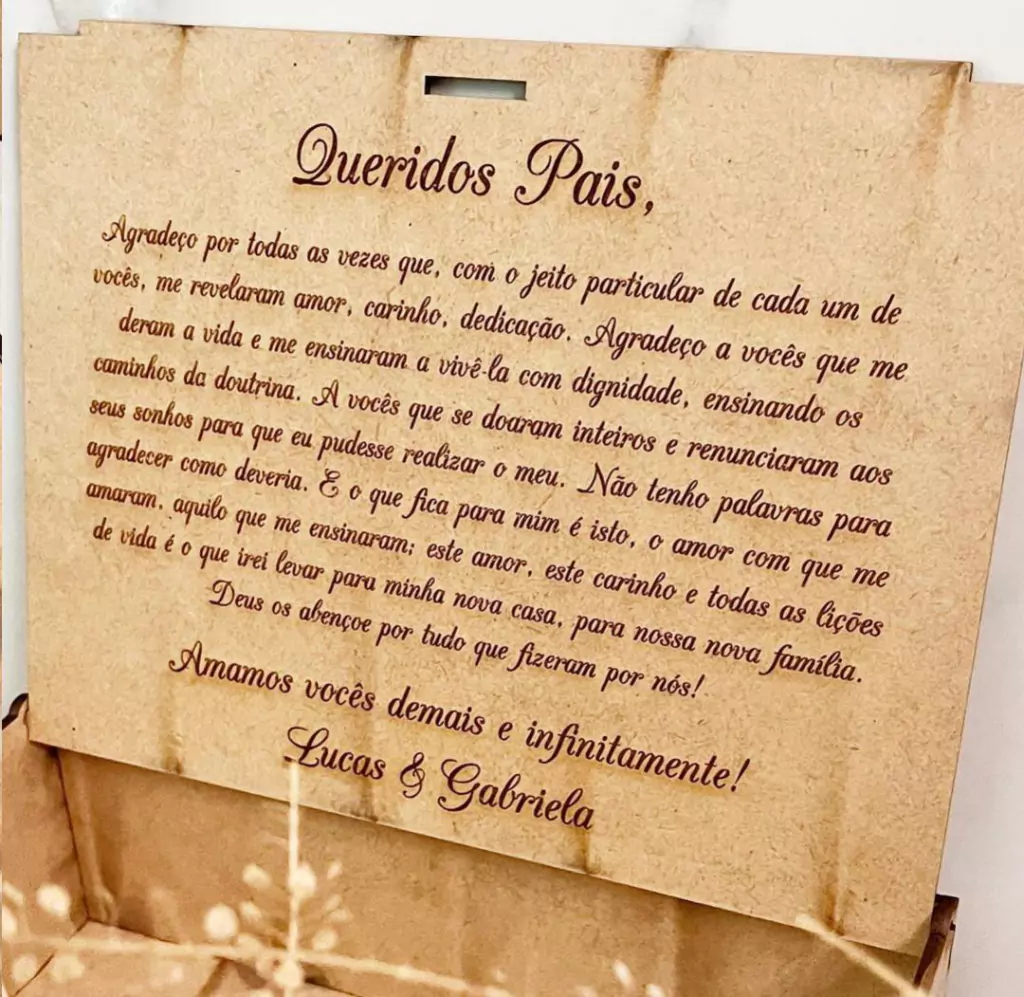 Queridos Pais,
Agradeço por todas as vezes que, com o jeito particular de cada um de
vocês, me revelaram amor, carinho, dedicação. Agradeço a vocês que me
deram a vida e me ensinaram a vivê-la com dignidade, ensinando os
caminhos da doutrina. A vocês que se doaram inteiros e renunciaram aos
seus sonhos para que eu pudesse realizar o meu. Não tenho palavras para
agradecer como deveria. E o que fica para mim é isto, o amor com que me
amaram, aquilo que me ensinaram; este amor, este carinho e todas as lições
de vida é o que irei levar para minha nova casa, para nossa nova família.
Deus os abençoe por tudo que fizeram por nós!
Amamos vocês demais e infinitamente!
Lucas & Gabriela